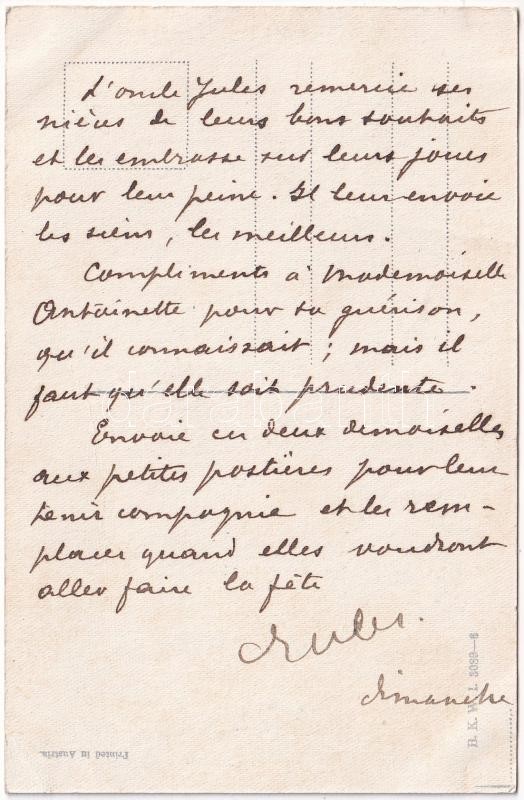 L'oncle Jules remercie ses
nièces de leurs bons souhaits
et les embrasse sur leurs joues
pour leur peine. Il leur envoie
les siens, les meilleurs.
Compliments à Mademoiselle
Antoinette pour sa guérison,
qu'il connaissait ; mais il
faut qu'elle soit prudente.
Envoie ces deux demoiselles
aux petites postières pour leur
tenir compagnie et les rem-
placer quand elles voudront
aller faire la fête
Jules.
dimanche
B. K. W. I. 3089—6
Printed in Austria.